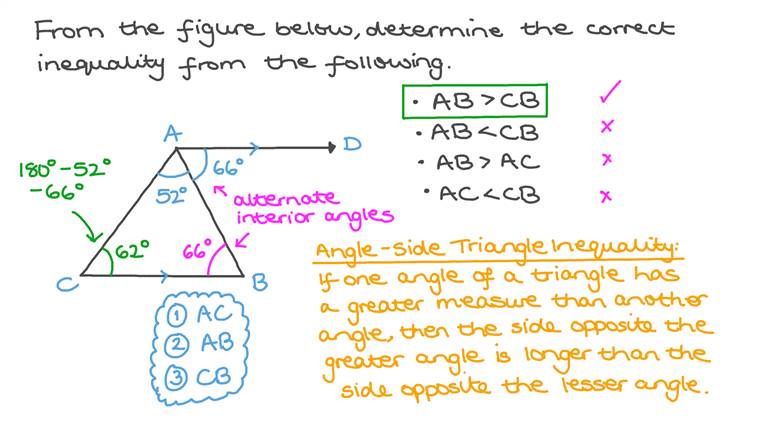 From the figure below, determine the correct
inequality from the following.
· AB > CB ✓
· AB < CB ×
· AB > AC ×
· AC < CB ×
A
D
180° - 52°
- 66°
66°
52°
alternate
interior angles
62°
66°
C
B
① AC
② AB
③ CB
Angle-Side Triangle Inequality:
If one angle of a triangle has
a greater measure than another
angle, then the side opposite the
greater angle is longer than the
side opposite the lesser angle.